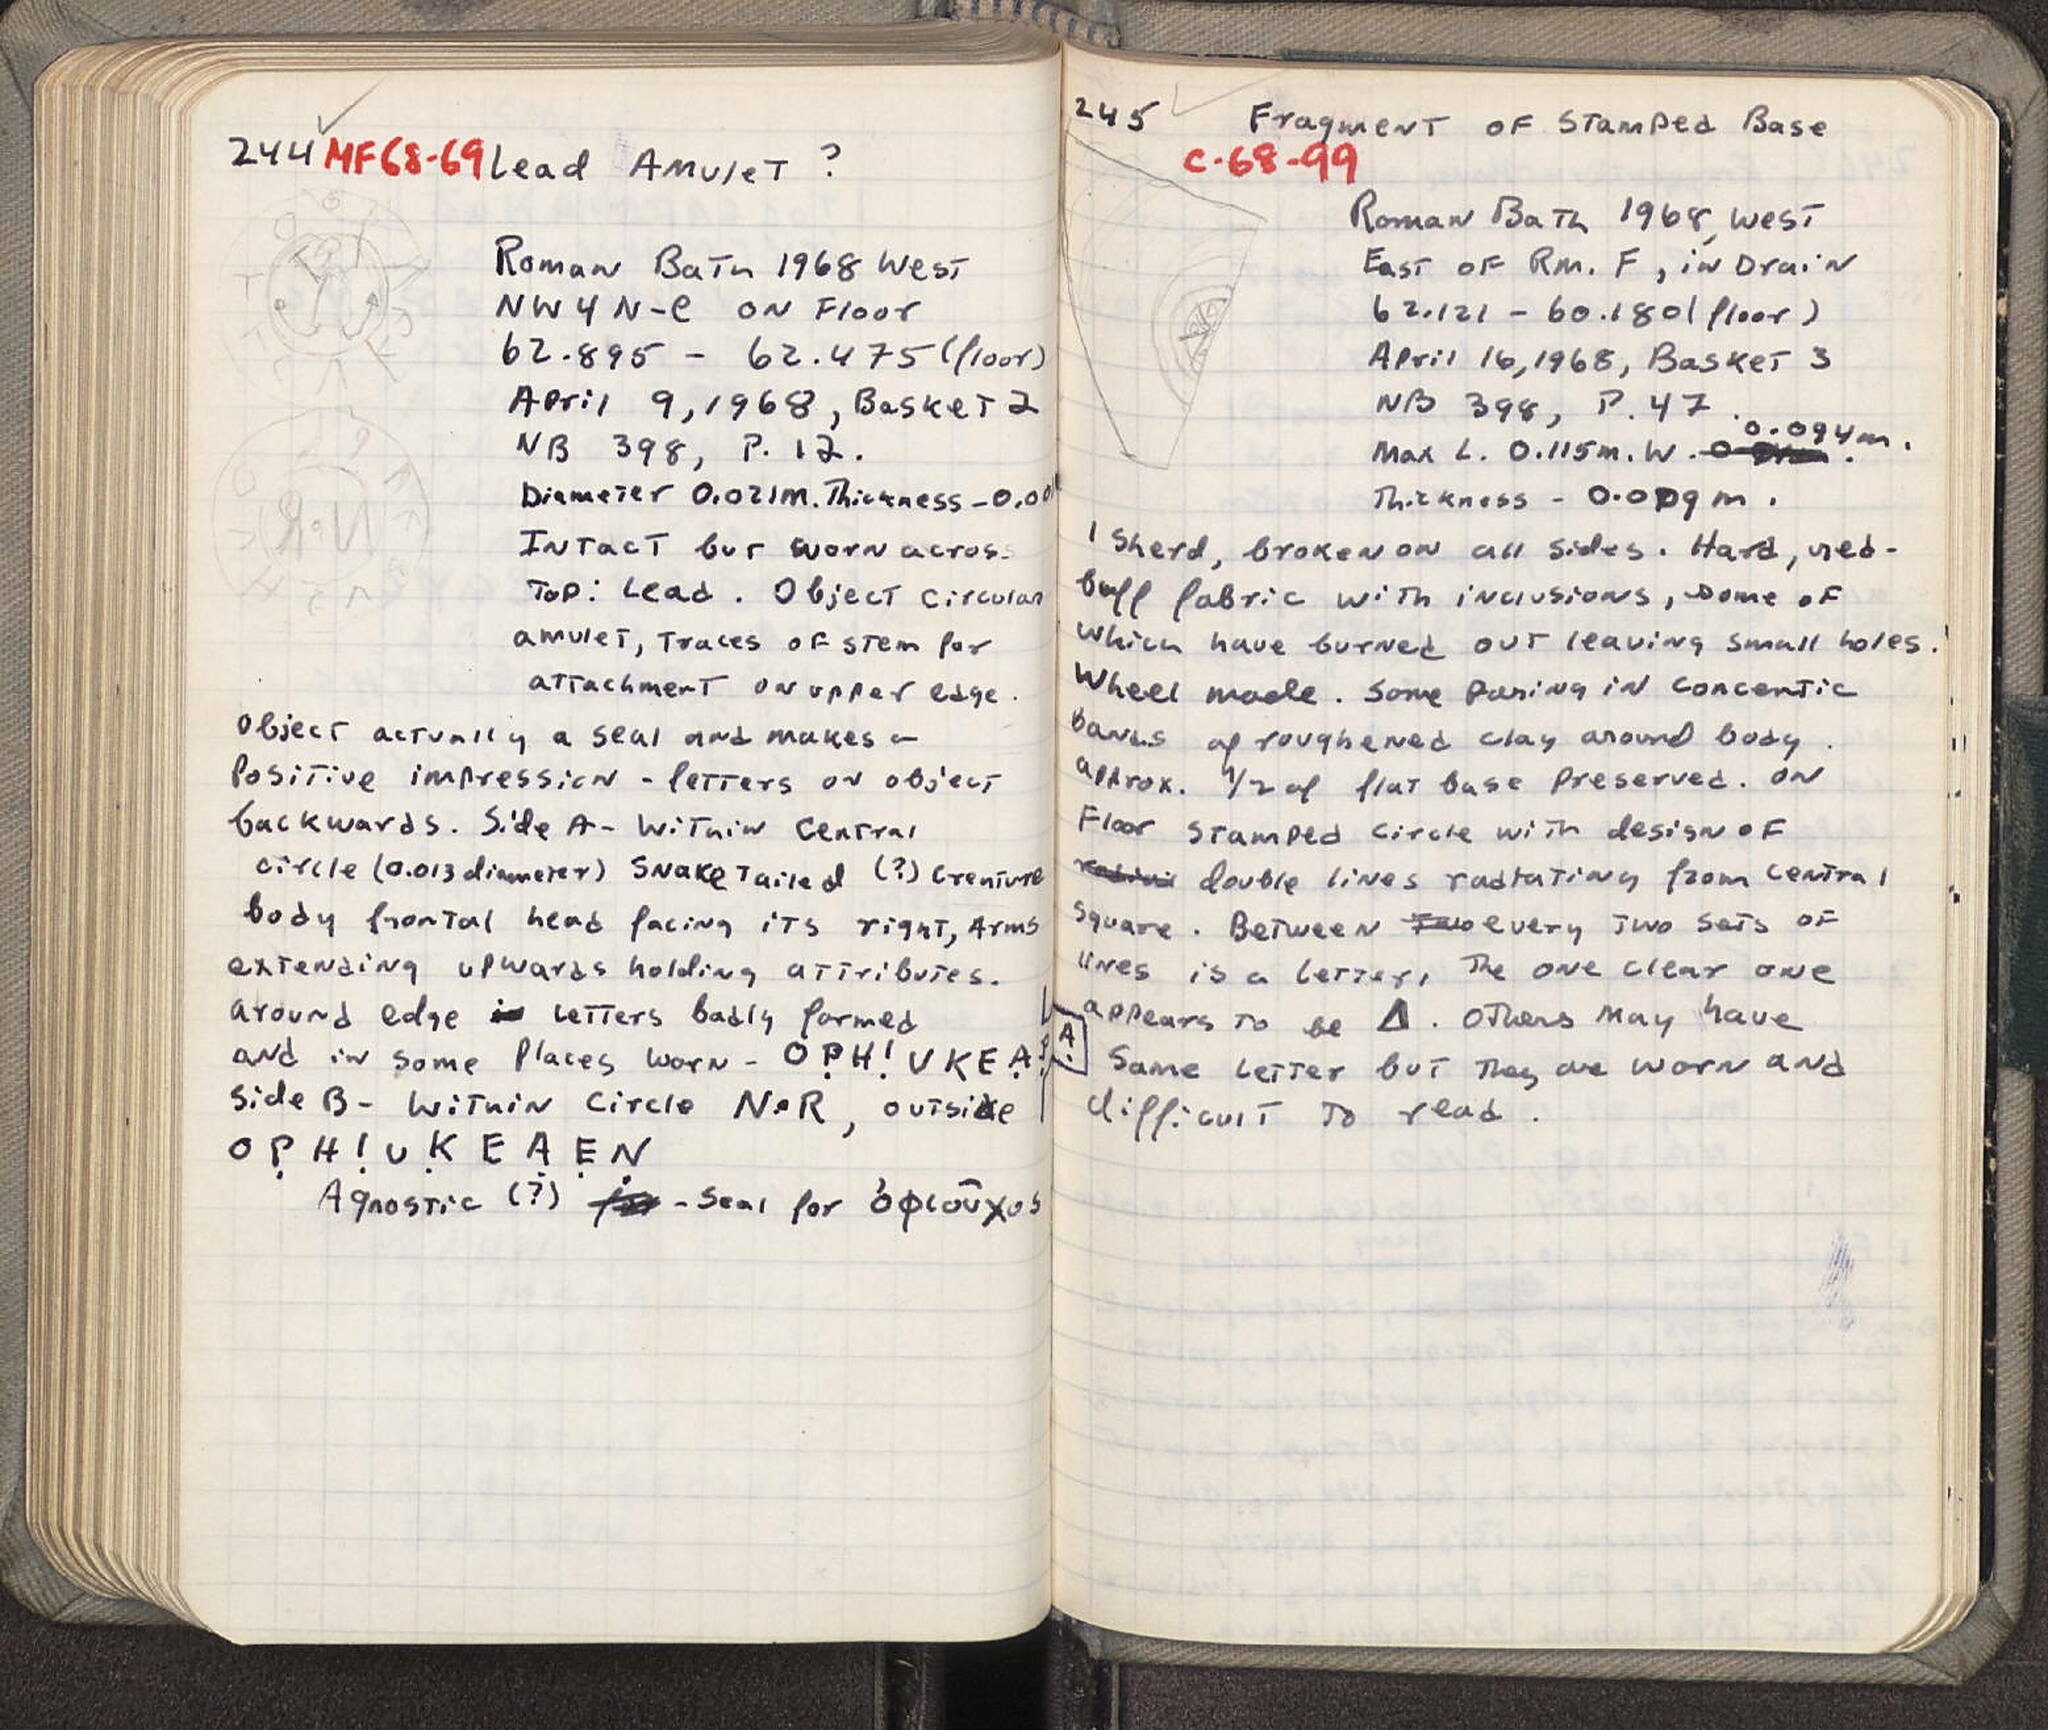 244 MF68-69 Lead Amulet ?
Roman Bath 1968 West
NW4N-C on Floor
62.895 - 62.475 (floor)
April 9, 1968, Basket 2
NB 398, P. 12.
Diameter 0.021m. Thickness - 0.00
Intact but worn across
Top: Lead. Object circular
amulet, traces of stem for
attachment on upper edge.
Object actually a seal and makes a
Positive impression - letters on object
backwards. Side A - Within Central
circle (0.013 diameter) Snake Tailed (?) Creature
body frontal head facing its right, Arms
extending upwards holding attributes.
around edge letters badly formed
and in some Places worn - OPH!UKEA
Side B - Within Circle N•R, outside
OPH!UKEAEN
Agnostic (?) - Seal for ὀφιοῦχος
245 Fragment of Stamped Base
C-68-99
Roman Bath 1968, West
East of Rm. F, in Drain
62.121 - 60.180 (floor)
April 16, 1968, Basket 3
NB 398, P. 47.
0.094m.
Max L. 0.115m. W.
Thickness - 0.009m.
1 Sherd, broken on all sides. Hard, red-
buff fabric with inclusions, some of
which have burned out leaving small holes.
Wheel made. Some paring in concentic
bands of roughened clay around body.
approx. 1/2 of flat base preserved. On
Floor stamped circle with design of
double lines radiating from central
square. Between every two sets of
lines is a letter, The one clear one
appears to be Δ. Others may have
A
Same letter but they are worn and
difficult to read.